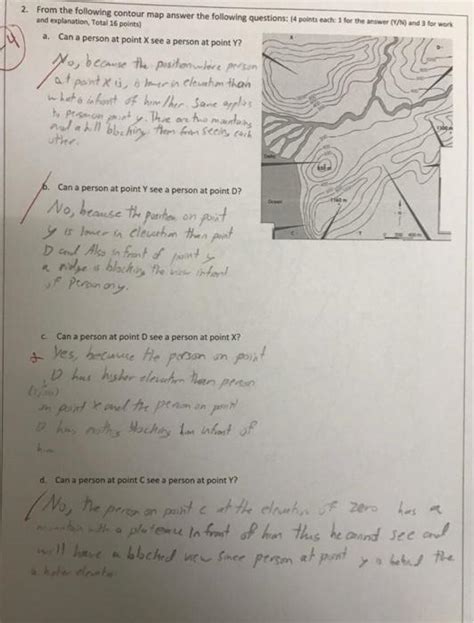 2. From the following contour map answer the following questions: (4 points each: 1 for the answer (Y/N) and 3 for work
and explanation, Total 16 points)
-4
a. Can a person at point X see a person at point Y?
No, because the position where person
at point X is, is lower in elevation than
what's infront of him/her. Same applies
to person on point y. There are two mountains
and a hill blocking them from seeing each
other.
b. Can a person at point Y see a person at point D?
No, because the position on point
y is lower in elevation than point
D and Also in front of point y
a ridge is blocking the view infront
of Person on y.
c. Can a person at point D see a person at point X?
Yes, because the person on point
D has higher elevation than person
on point x and the person on point
D has nothing blocking him infront of
him
d. Can a person at point C see a person at point Y?
No, the person on point c at the elevation of zero has a
mountain with a plateau in front of him thus he cannot see and
will have a blocked view since person at point y is behind the
X
D
Ocean
C
Y